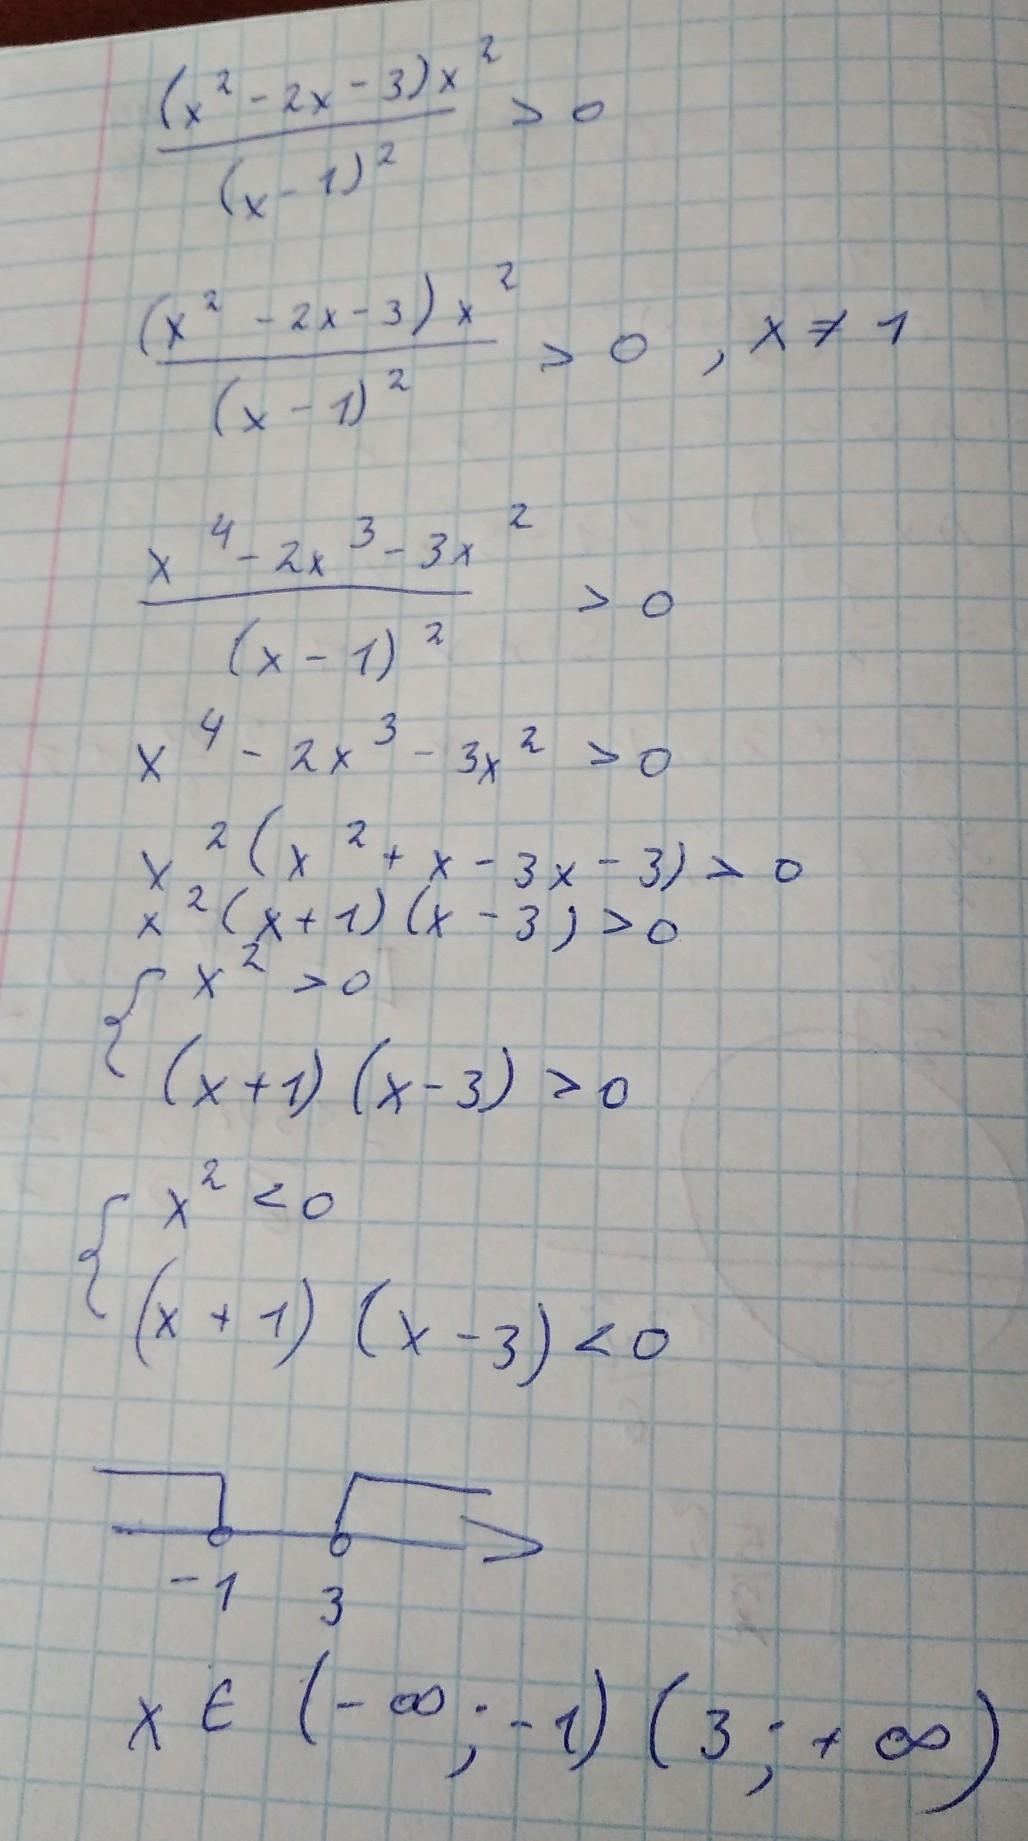 (x² - 2x - 3)x² / (x - 1)² > 0
(x² - 2x - 3)x² / (x - 1)² > 0 , x ≠ 1
x⁴ - 2x³ - 3x² / (x - 1)² > 0
x⁴ - 2x³ - 3x² > 0
x²(x² + x - 3x - 3) > 0
x²(x + 1)(x - 3) > 0
{ x² > 0
(x + 1)(x - 3) > 0
{ x² < 0
(x + 1)(x - 3) < 0
-1 3
x ∈ (-∞; -1) (3; +∞)